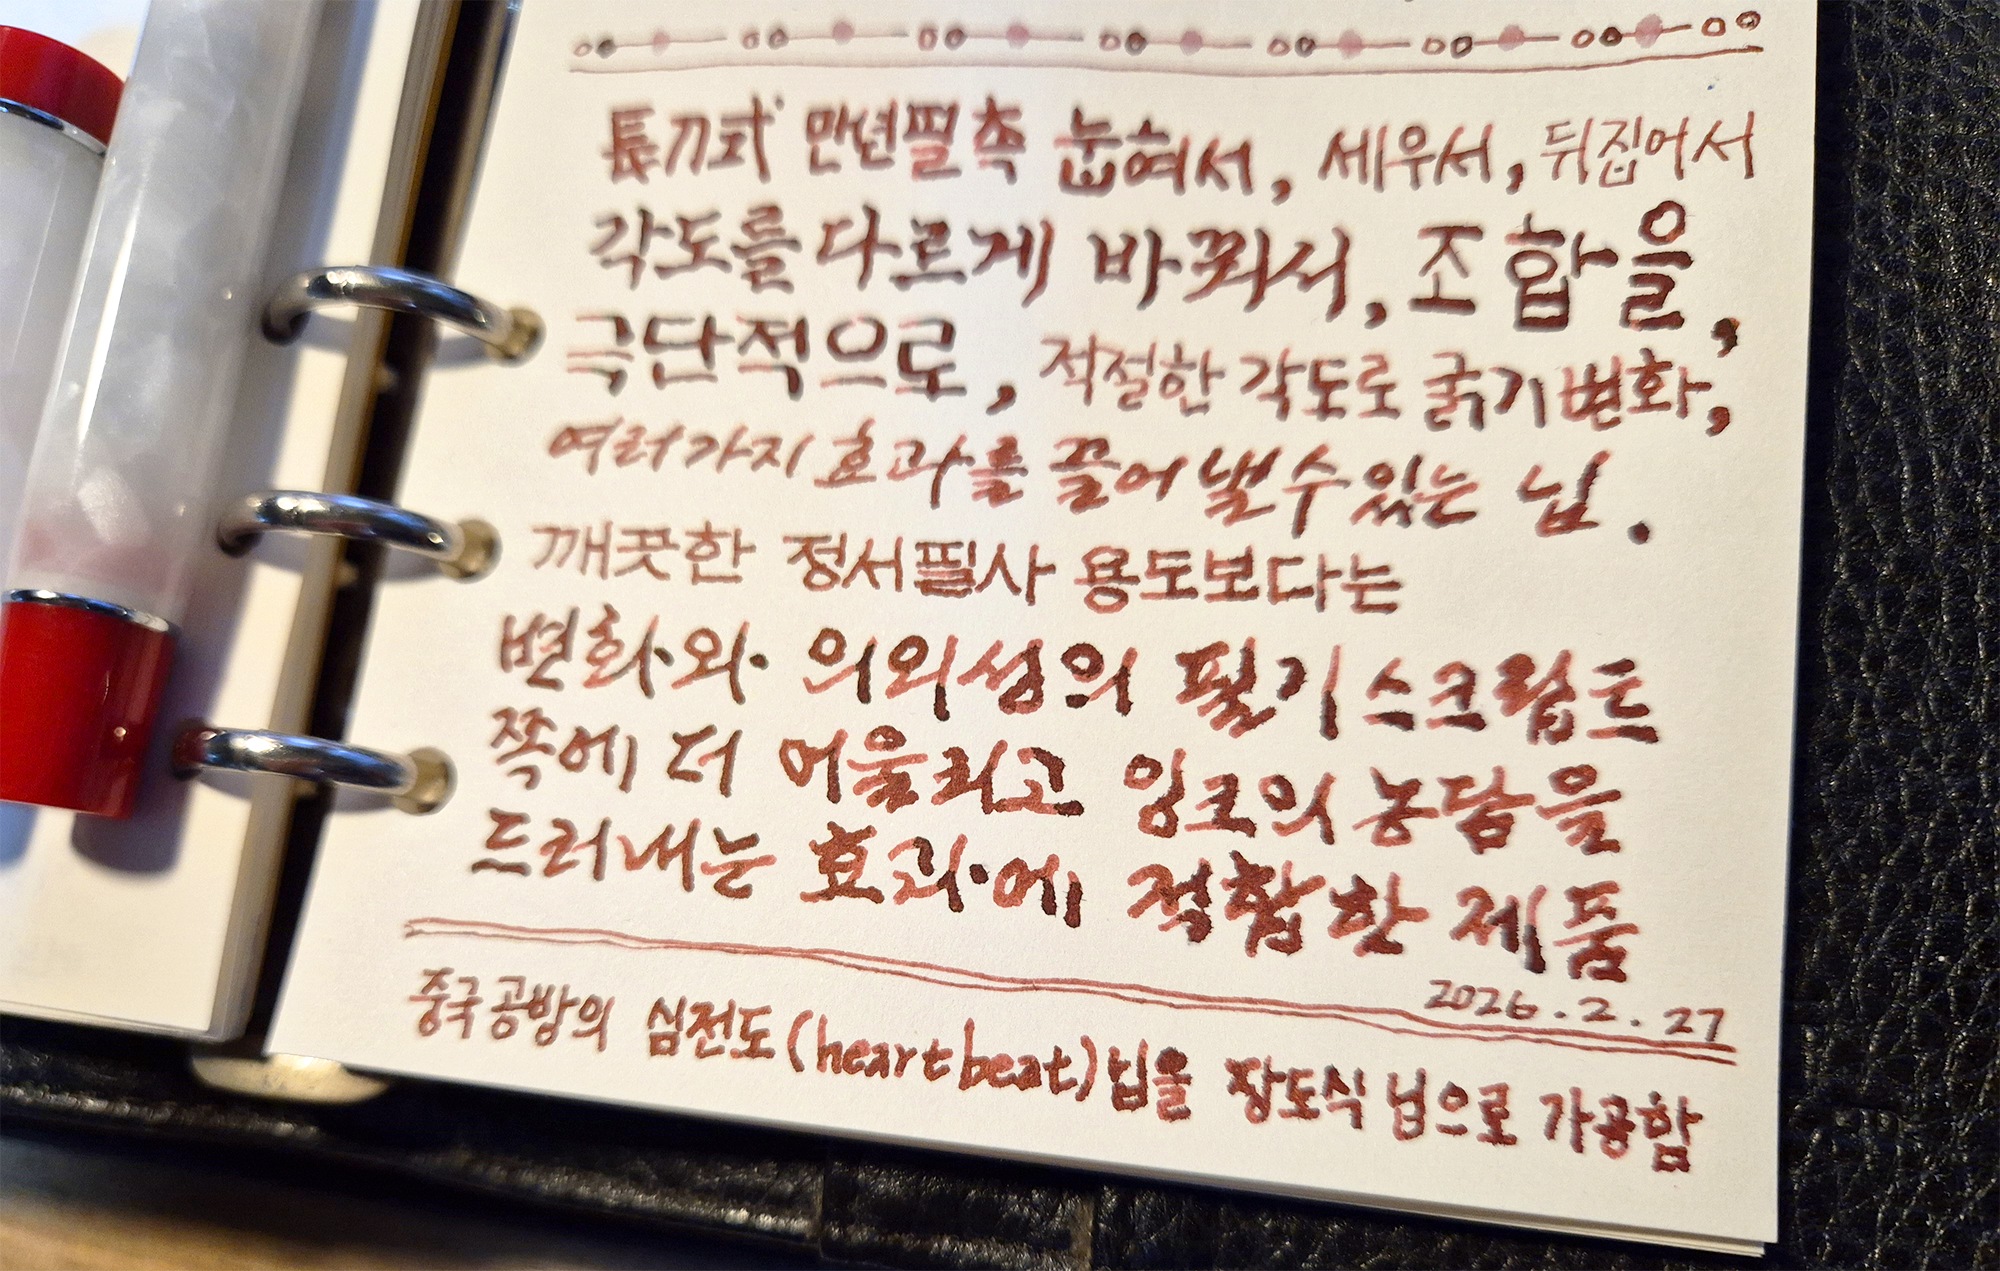 長刀式 만년필촉 눕혀서, 세우서, 뒤집어서
각도를 다르게 바꿔서, 조합을,
극단적으로, 적절한 각도로 굵기변화,
여러가지 효과를 끌어 낼수있는 닙.
깨끗한 정서필사 용도보다는
변화와 의외성의 필기 스크립트
쪽에 더 어울리고 잉크의 농담을
드러내는 효과에 적합한 제품
2026.2.27
중국공방의 심전도(heartbeat)닙을 장도식 닙으로 가공함